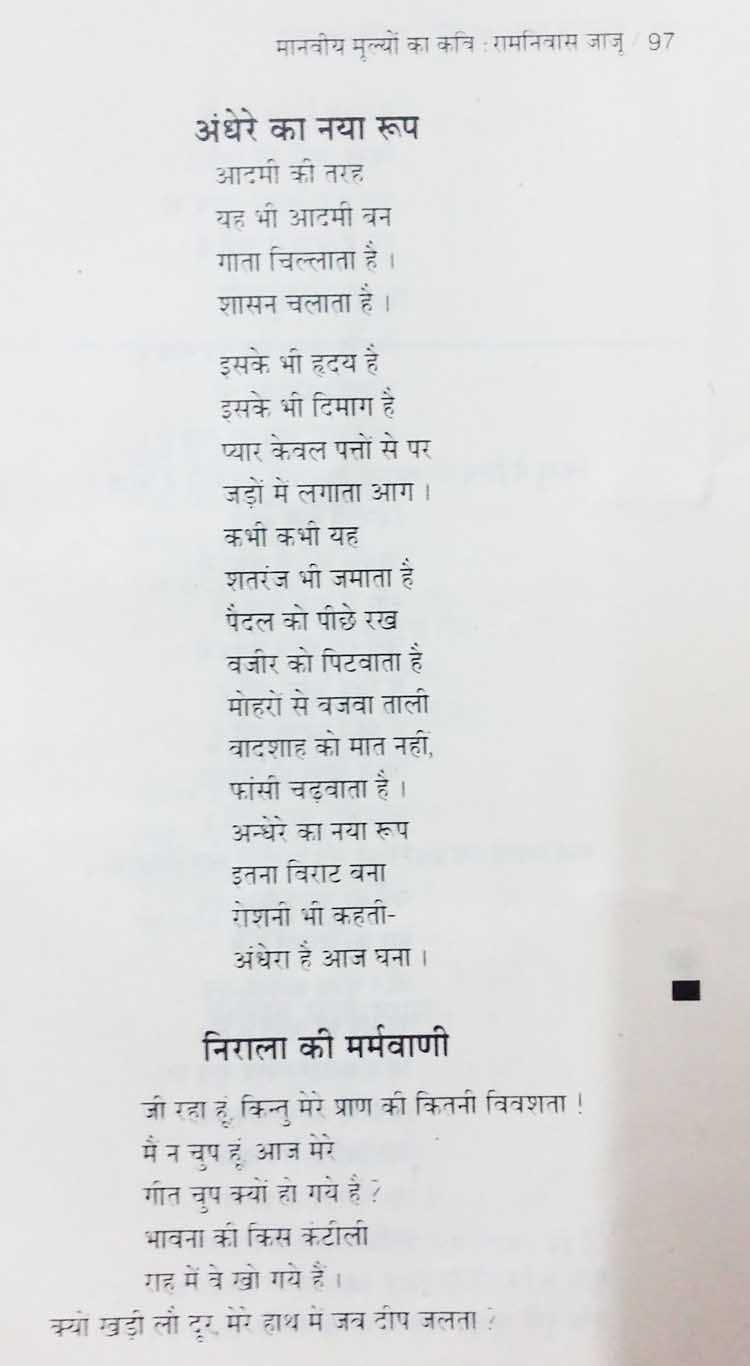 मानवीय मूल्यों का कवि : रामनिवास जाजू / 97
अंधेरे का नया रूप
आदमी की तरह
यह भी आदमी बन
गाता चिल्लाता है ।
शासन चलाता है ।
इसके भी हृदय है
इसके भी दिमाग है
प्यार केवल पत्तों से पर
जड़ों में लगाता आग ।
कभी कभी यह
शतरंज भी जमाता है
पैदल को पीछे रख
वजीर को पिटवाता है
मोहरों से बजवा ताली
बादशाह को मात नहीं,
फांसी चढ़वाता है ।
अन्धेरे का नया रूप
इतना विराट बना
रोशनी भी कहती-
अंधेरा है आज घना ।
निराला की मर्मवाणी
जी रहा हूं, किन्तु मेरे प्राण की कितनी विवशता !
मैं न चुप हूं, आज मेरे
गीत चुप क्यों हो गये है ?
भावना की किस कंटीली
राह में वे खो गये हैं ।
क्यों खड़ी लौ दूर, मेरे हाथ में जब दीप जलता ?